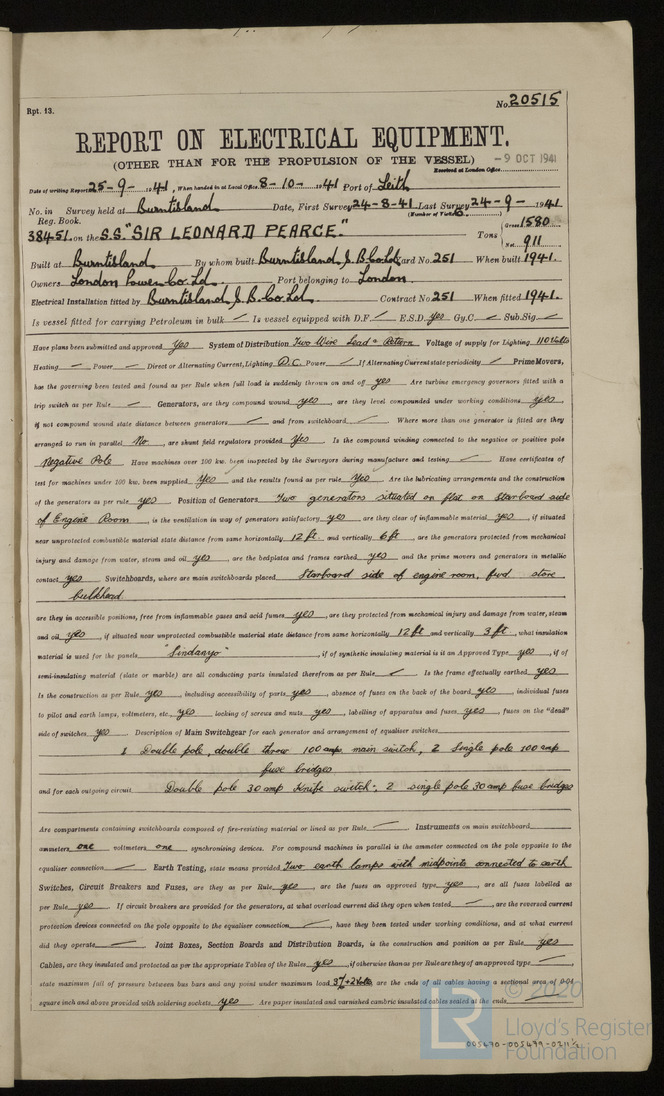 Rpt. 13.
No. 20515
REPORT ON ELECTRICAL EQUIPMENT.
(OTHER THAN FOR THE PROPULSION OF THE VESSEL)
-9 OCT 1941
Received at London Office
Date of writing Report 25-9- 1941, When handed in at Local Office 8-10- 1941 Port of Leith
No. in Survey held at Burntisland Date, First Survey 24-8-41 Last Survey 24-9- 1941
Reg. Book. (Number of Visits 6.
38451 on the S.S. "SIR LEONARD PEARCE." Tons { Gross 1580
Net 911
Built at Burntisland By whom built Burntisland S.B. Co Ld Yard No. 251 When built 1941.
Owners London Power Co. Ld. Port belonging to London.
Electrical Installation fitted by Burntisland S.B. Co. Ld. Contract No. 251 When fitted 1941.
Is vessel fitted for carrying Petroleum in bulk — Is vessel equipped with D.F. — E.S.D. yes Gy.C. — Sub.Sig —
Have plans been submitted and approved Yes System of Distribution Two Wire Lead & Return Voltage of supply for Lighting 110 Volts
Heating — Power — Direct or Alternating Current, Lighting D.C. Power — If Alternating Current state periodicity — Prime Movers,
has the governing been tested and found as per Rule when full load is suddenly thrown on and off yes Are turbine emergency governors fitted with a
trip switch as per Rule — Generators, are they compound wound yes, are they level compounded under working conditions yes,
if not compound wound state distance between generators — and from switchboard — Where more than one generator is fitted are they
arranged to run in parallel No, are shunt field regulators provided Yes Is the compound winding connected to the negative or positive pole
Negative Pole Have machines over 100 kw. been inspected by the Surveyors during manufacture and testing — Have certificates of
test for machines under 100 kw. been supplied Yes and the results found as per rule Yes Are the lubricating arrangements and the construction
of the generators as per rule yes Position of Generators Two generators situated on flat on Starboard side
of Engine Room, is the ventilation in way of generators satisfactory yes are they clear of inflammable material yes, if situated
near unprotected combustible material state distance from same horizontally 12 ft and vertically 6 ft, are the generators protected from mechanical
injury and damage from water, steam and oil yes, are the bedplates and frames earthed yes and the prime movers and generators in metallic
contact yes Switchboards, where are main switchboards placed Starboard side of engine room, fwd store
bulkhead
are they in accessible positions, free from inflammable gases and acid fumes yes, are they protected from mechanical injury and damage from water, steam
and oil yes, if situated near unprotected combustible material state distance from same horizontally 12 ft and vertically 3 ft, what insulation
material is used for the panels "Sindanyo", if of synthetic insulating material is it an Approved Type yes, if of
semi-insulating material (slate or marble) are all conducting parts insulated therefrom as per Rule — Is the frame effectually earthed yes
Is the construction as per Rule yes, including accessibility of parts yes, absence of fuses on the back of the board yes, individual fuses
to pilot and earth lamps, voltmeters, etc. yes locking of screws and nuts yes, labelling of apparatus and fuses yes, fuses on the "dead"
side of switches yes Description of Main Switchgear for each generator and arrangement of equaliser switches
1 Double pole, double throw 100 amp. main switch, 2 Single pole 100 amp
fuse bridges
and for each outgoing circuit Double pole 30 amp Knife switch, 2 single pole 30 amp fuse bridges
Are compartments containing switchboards composed of fire-resisting material or lined as per Rule — Instruments on main switchboard
ammeters one voltmeters one synchronising devices. For compound machines in parallel is the ammeter connected on the pole opposite to the
equaliser connection — Earth Testing, state means provided Two earth lamps with midpoints connected to earth
Switches, Circuit Breakers and Fuses, are they as per Rule yes, are the fuses an approved type yes, are all fuses labelled as
per Rule yes If circuit breakers are provided for the generators, at what overload current did they open when tested —, are the reversed current
protection devices connected on the pole opposite to the equaliser connection —, have they been tested under working conditions, and at what current
did they operate — Joint Boxes, Section Boards and Distribution Boards, is the construction and position as per Rule yes
Cables, are they insulated and protected as per the appropriate Tables of the Rules yes, if otherwise than as per Rule are they of an approved type —
state maximum fall of pressure between bus bars and any point under maximum load 3%+2 Volts are the ends of all cables having a sectional area of 0.01
square inch and above provided with soldering sockets yes Are paper insulated and varnished cambric insulated cables sealed at the ends —
© 2020
LR
Lloyd's Register
Foundation